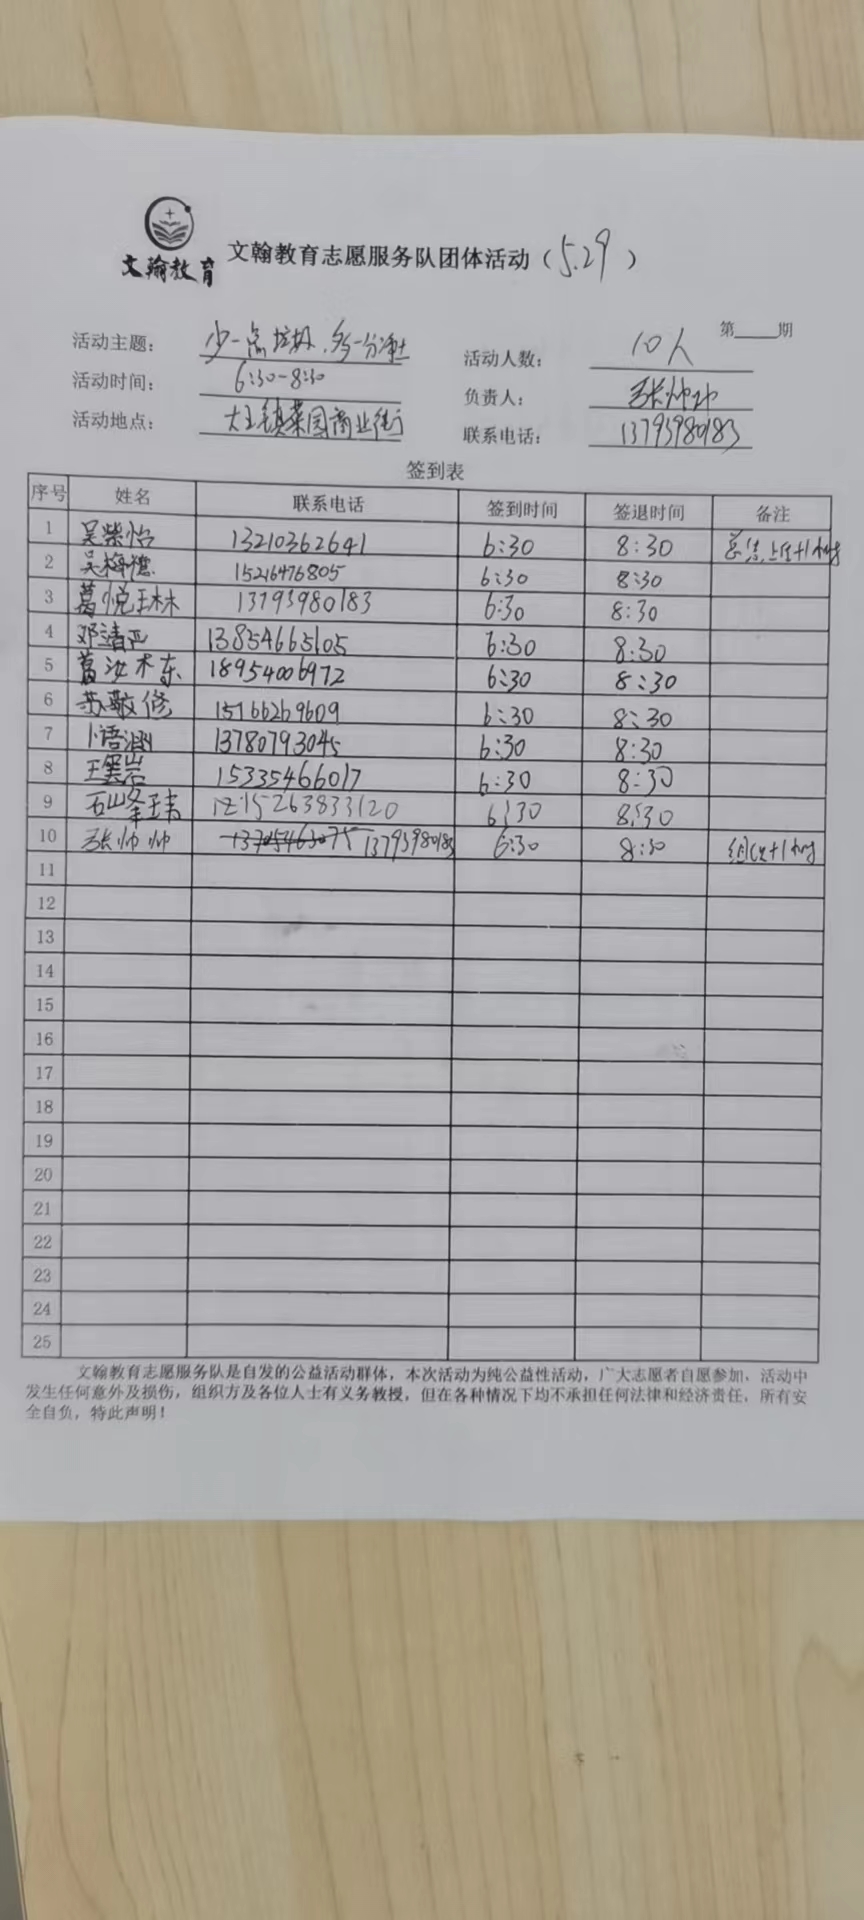 文翰教育
文翰教育志愿服务队团体活动（5.29）
第____期
活动主题：少一点垃圾，多一分净土
活动人数：10人
活动时间：6:30-8:30
负责人：张帅帅
活动地点：大王镇菜园商业街
联系电话：13793980183
签到表
序号 姓名 联系电话 签到时间 签退时间 备注
1 吴紫怡 13210362641 6:30 8:30 总结上传+1小时
2 吴梅德 15216476805 6:30 8:30
3 葛悦琳 13793980183 6:30 8:30
4 邓清 13854665105 6:30 8:30
5 葛汝栋 18954006972 6:30 8:30
6 苏敬修 15166269609 6:30 8:30
7 卜语涵 13780793045 6:30 8:30
8 王 岩 15335466017 6:30 8:30
9 石 15263833120 6:30 8:30
10 张帅帅 13705463075 13793980183 6:30 8:30 组织+1小时
11
12
13
14
15
16
17
18
19
20
21
22
23
24
25
文翰教育志愿服务队是自发的公益活动群体，本次活动为纯公益性活动，广大志愿者自愿参加，活动中
发生任何意外及损伤，组织方及各位人士有义务教授，但在各种情况下均不承担任何法律和经济责任，所有安
全自负，特此声明！